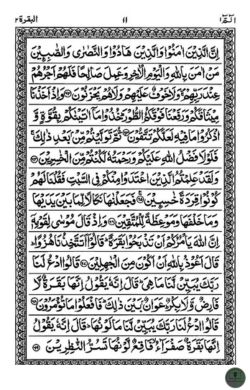 الٓمّٓ ١ ١١ البقرة ٢
اِنَّ الَّذِيْنَ اٰمَنُوْا وَالَّذِيْنَ هَادُوْا وَالنَّصٰرٰى وَالصّٰبِـِٕيْنَ
مَنْ اٰمَنَ بِاللّٰهِ وَالْيَوْمِ الْاٰخِرِ وَعَمِلَ صَالِحًا فَلَهُمْ اَجْرُهُمْ
عِنْدَ رَبِّهِمْ وَلَا خَوْفٌ عَلَيْهِمْ وَلَا هُمْ يَحْزَنُوْنَ ۝ وَاِذْ اَخَذْنَا
مِيْثَاقَكُمْ وَرَفَعْنَا فَوْقَكُمُ الطُّوْرَ خُذُوْا مَآ اٰتَيْنٰكُمْ بِقُوَّةٍ وَّ
اذْكُرُوْا مَا فِيْهِ لَعَلَّكُمْ تَتَّقُوْنَ ۝ ثُمَّ تَوَلَّيْتُمْ مِّنْ بَعْدِ ذٰلِكَ
فَلَوْلَا فَضْلُ اللّٰهِ عَلَيْكُمْ وَرَحْمَتُهٗ لَكُنْتُمْ مِّنَ الْخٰسِرِيْنَ ۝
وَلَقَدْ عَلِمْتُمُ الَّذِيْنَ اعْتَدَوْا مِنْكُمْ فِى السَّبْتِ فَقُلْنَا لَهُمْ
كُوْنُوْا قِرَدَةً خٰسِـِٕيْنَ ۝ فَجَعَلْنٰهَا نَكَالًا لِّمَا بَيْنَ يَدَيْهَا
وَمَا خَلْفَهَا وَمَوْعِظَةً لِّلْمُتَّقِيْنَ ۝ وَاِذْ قَالَ مُوْسٰى لِقَوْمِهٖٓ
اِنَّ اللّٰهَ يَاْمُرُكُمْ اَنْ تَذْبَحُوْا بَقَرَةً قَالُوْٓا اَتَتَّخِذُنَا هُزُوًا
قَالَ اَعُوْذُ بِاللّٰهِ اَنْ اَكُوْنَ مِنَ الْجٰهِلِيْنَ ۝ قَالُوا ادْعُ لَنَا
رَبَّكَ يُبَيِّنْ لَّنَا مَا هِىَ قَالَ اِنَّهٗ يَقُوْلُ اِنَّهَا بَقَرَةٌ لَّا
فَارِضٌ وَّلَا بِكْرٌ عَوَانٌ بَيْنَ ذٰلِكَ فَافْعَلُوْا مَا تُؤْمَرُوْنَ ۝
قَالُوا ادْعُ لَنَا رَبَّكَ يُبَيِّنْ لَّنَا مَا لَوْنُهَا قَالَ اِنَّهٗ يَقُوْلُ
اِنَّهَا بَقَرَةٌ صَفْرَآءُ فَاقِعٌ لَّوْنُهَا تَسُرُّ النّٰظِرِيْنَ ۝